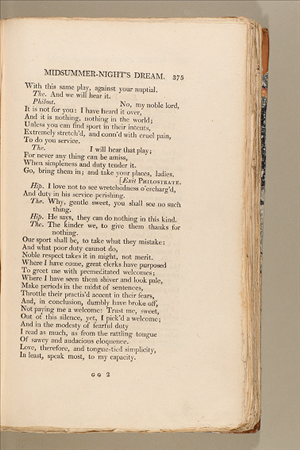 MIDSUMMER-NIGHT'S DREAM. 375
With this same play, against your nuptial.
The. And we will hear it.
Philost. No, my noble lord,
It is not for you: I have heard it over,
And it is nothing, nothing in the world;
Unless you can find sport in their intents,
Extremely stretch'd, and conn'd with cruel pain,
To do you service.
The. I will hear that play;
For never any thing can be amiss,
When simpleness and duty tender it.
Go, bring them in; and take your places, ladies.
[Exit PHILOSTRATE.
Hip. I love not to see wretchedness o'ercharg'd,
And duty in his service perishing.
The. Why, gentle sweet, you shall see no such
thing.
Hip. He says, they can do nothing in this kind.
The. The kinder we, to give them thanks for
nothing.
Our sport shall be, to take what they mistake:
And what poor duty cannot do,
Noble respect takes it in might, not merit.
Where I have come, great clerks have purposed
To greet me with premeditated welcomes;
Where I have seen them shiver and look pale,
Make periods in the midst of sentences,
Throttle their practis'd accent in their fears,
And, in conclusion, dumbly have broke off,
Not paying me a welcome: Trust me, sweet,
Out of this silence, yet, I pick'd a welcome;
And in the modesty of fearful duty
I read as much, as from the rattling tongue
Of sawcy and audacious eloquence.
Love, therefore, and tongue-tied simplicity,
In least, speak most, to my capacity.
G G 2